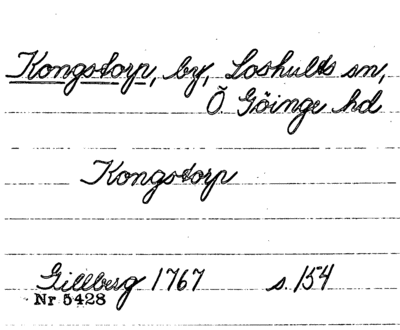 Kongstorp, by, Loshults sn,
Ö. Göinge hd
Kongstorp
Gillberg 1767 s. 154
Nr 5428